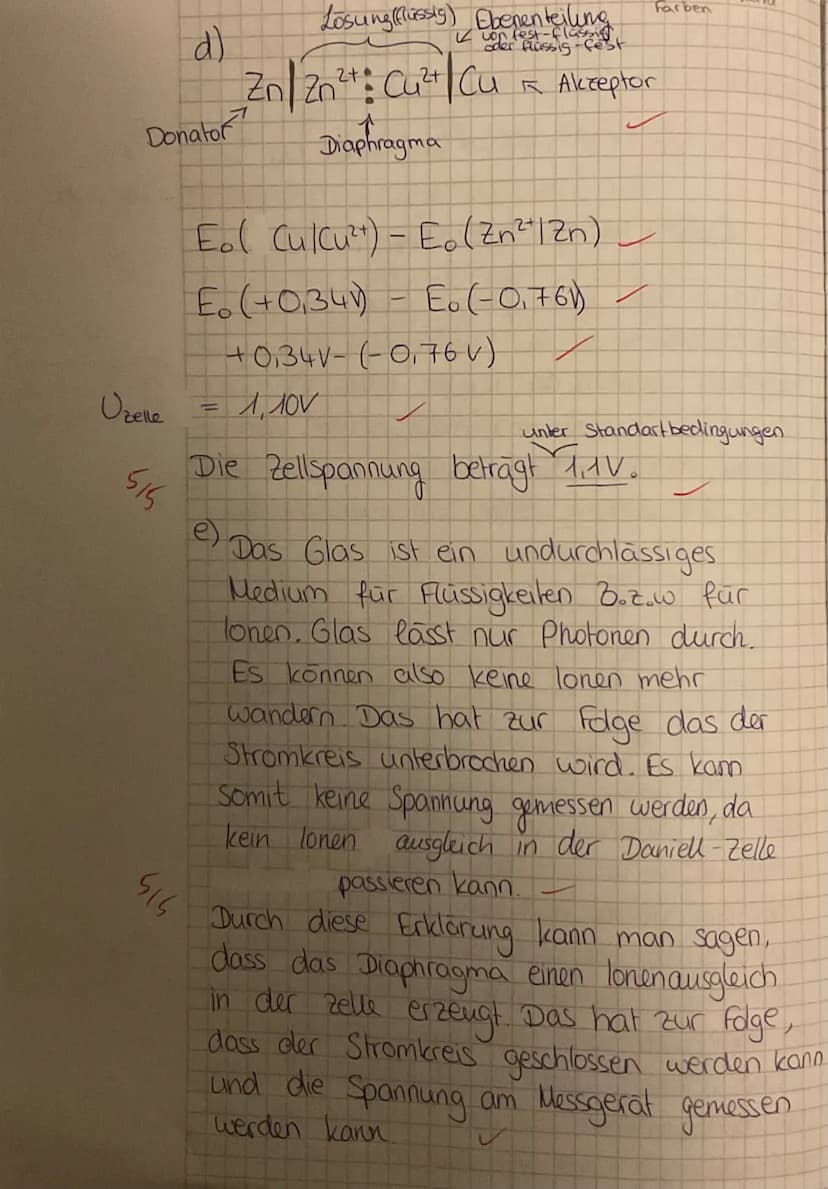 Farben
Lösung(flüssig) Ebenenteilung
von fest-flüssig
oder flüssig-fest
d)
Zn|Zn²⁺⋮Cu²⁺|Cu ↖ Akzeptor
Donator
Diaphragma
E₀( Cu|Cu²⁺) - E₀(Zn²⁺|Zn)
E₀(+0,34V) - E₀(-0,76V)
+0,34V-(-0,76V)
Uzelle = 1,10V
unter Standartbedingungen
Die Zellspannung beträgt 1,1V.
5/5
e) Das Glas ist ein undurchlässiges
Medium für Flüssigkeiten B.z.w für
Ionen. Glas lässt nur Photonen durch.
Es können also keine Ionen mehr
wandern. Das hat zur Folge das der
Stromkreis unterbrochen wird. Es kann
somit keine Spannung gemessen werden, da
kein Ionen ausgleich in der Daniell-Zelle
passieren kann.
5/5
Durch diese Erklärung kann man sagen,
dass das Diaphragma einen Ionenausgleich
in der Zelle erzeugt. Das hat zur Folge,
dass der Stromkreis geschlossen werden kann
und die Spannung am Messgerät gemessen
werden kann